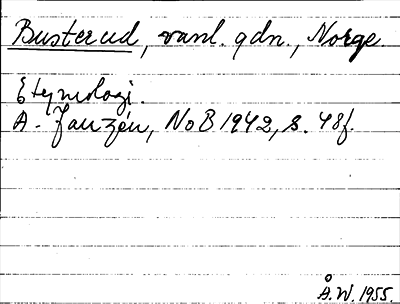 Busterud, vanl. gdn., Norge.
Etymologi.
A. Janzén, NoB 1942, s. 48f.
Å.W. 1955.